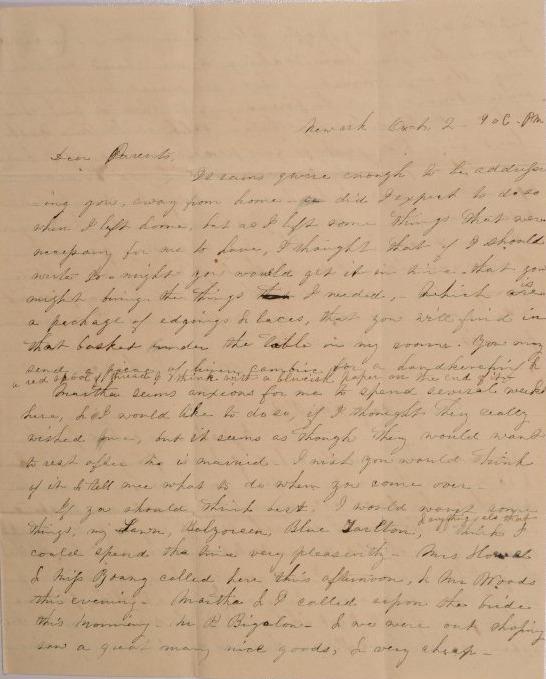 Newark Oct. 2 - 9 oC. PM
Dear Parents,
It seams quire enough to be address
ing you, away from home - did I expect to do so
when I left home, but as I left some things that were
necessary for me to have, I thought that if I should
write to-night you would get it in time, that you
might bring the things I needed, - Which are
a package of edgings & laces, that you will find in
that basket under the table in my rooms. You may
send a piece of linen cambric for a handkerchief &
a red spool of thread I think with a blueish paper on the end of it
Martha seems anxious for me to spend several weeks
here, & I would like to do so, if I thought they really
wished for me, but it seems as though they would want
to rest after she is married - I wish you would think
of it & tell me what to do when you come over -
If you should think best, I would want some
things, my Lawn, Balzoreen, Blue Tarlton, & anything else that
think I
could spend the time very pleasently - Mrs
& Miss Young called here this afternoon, & Mr Woods
this evening - Martha & I called upon the bride
this morning - Mr P. Bigalow - & we were out shoping
saw a great many nice goods, & very cheap -